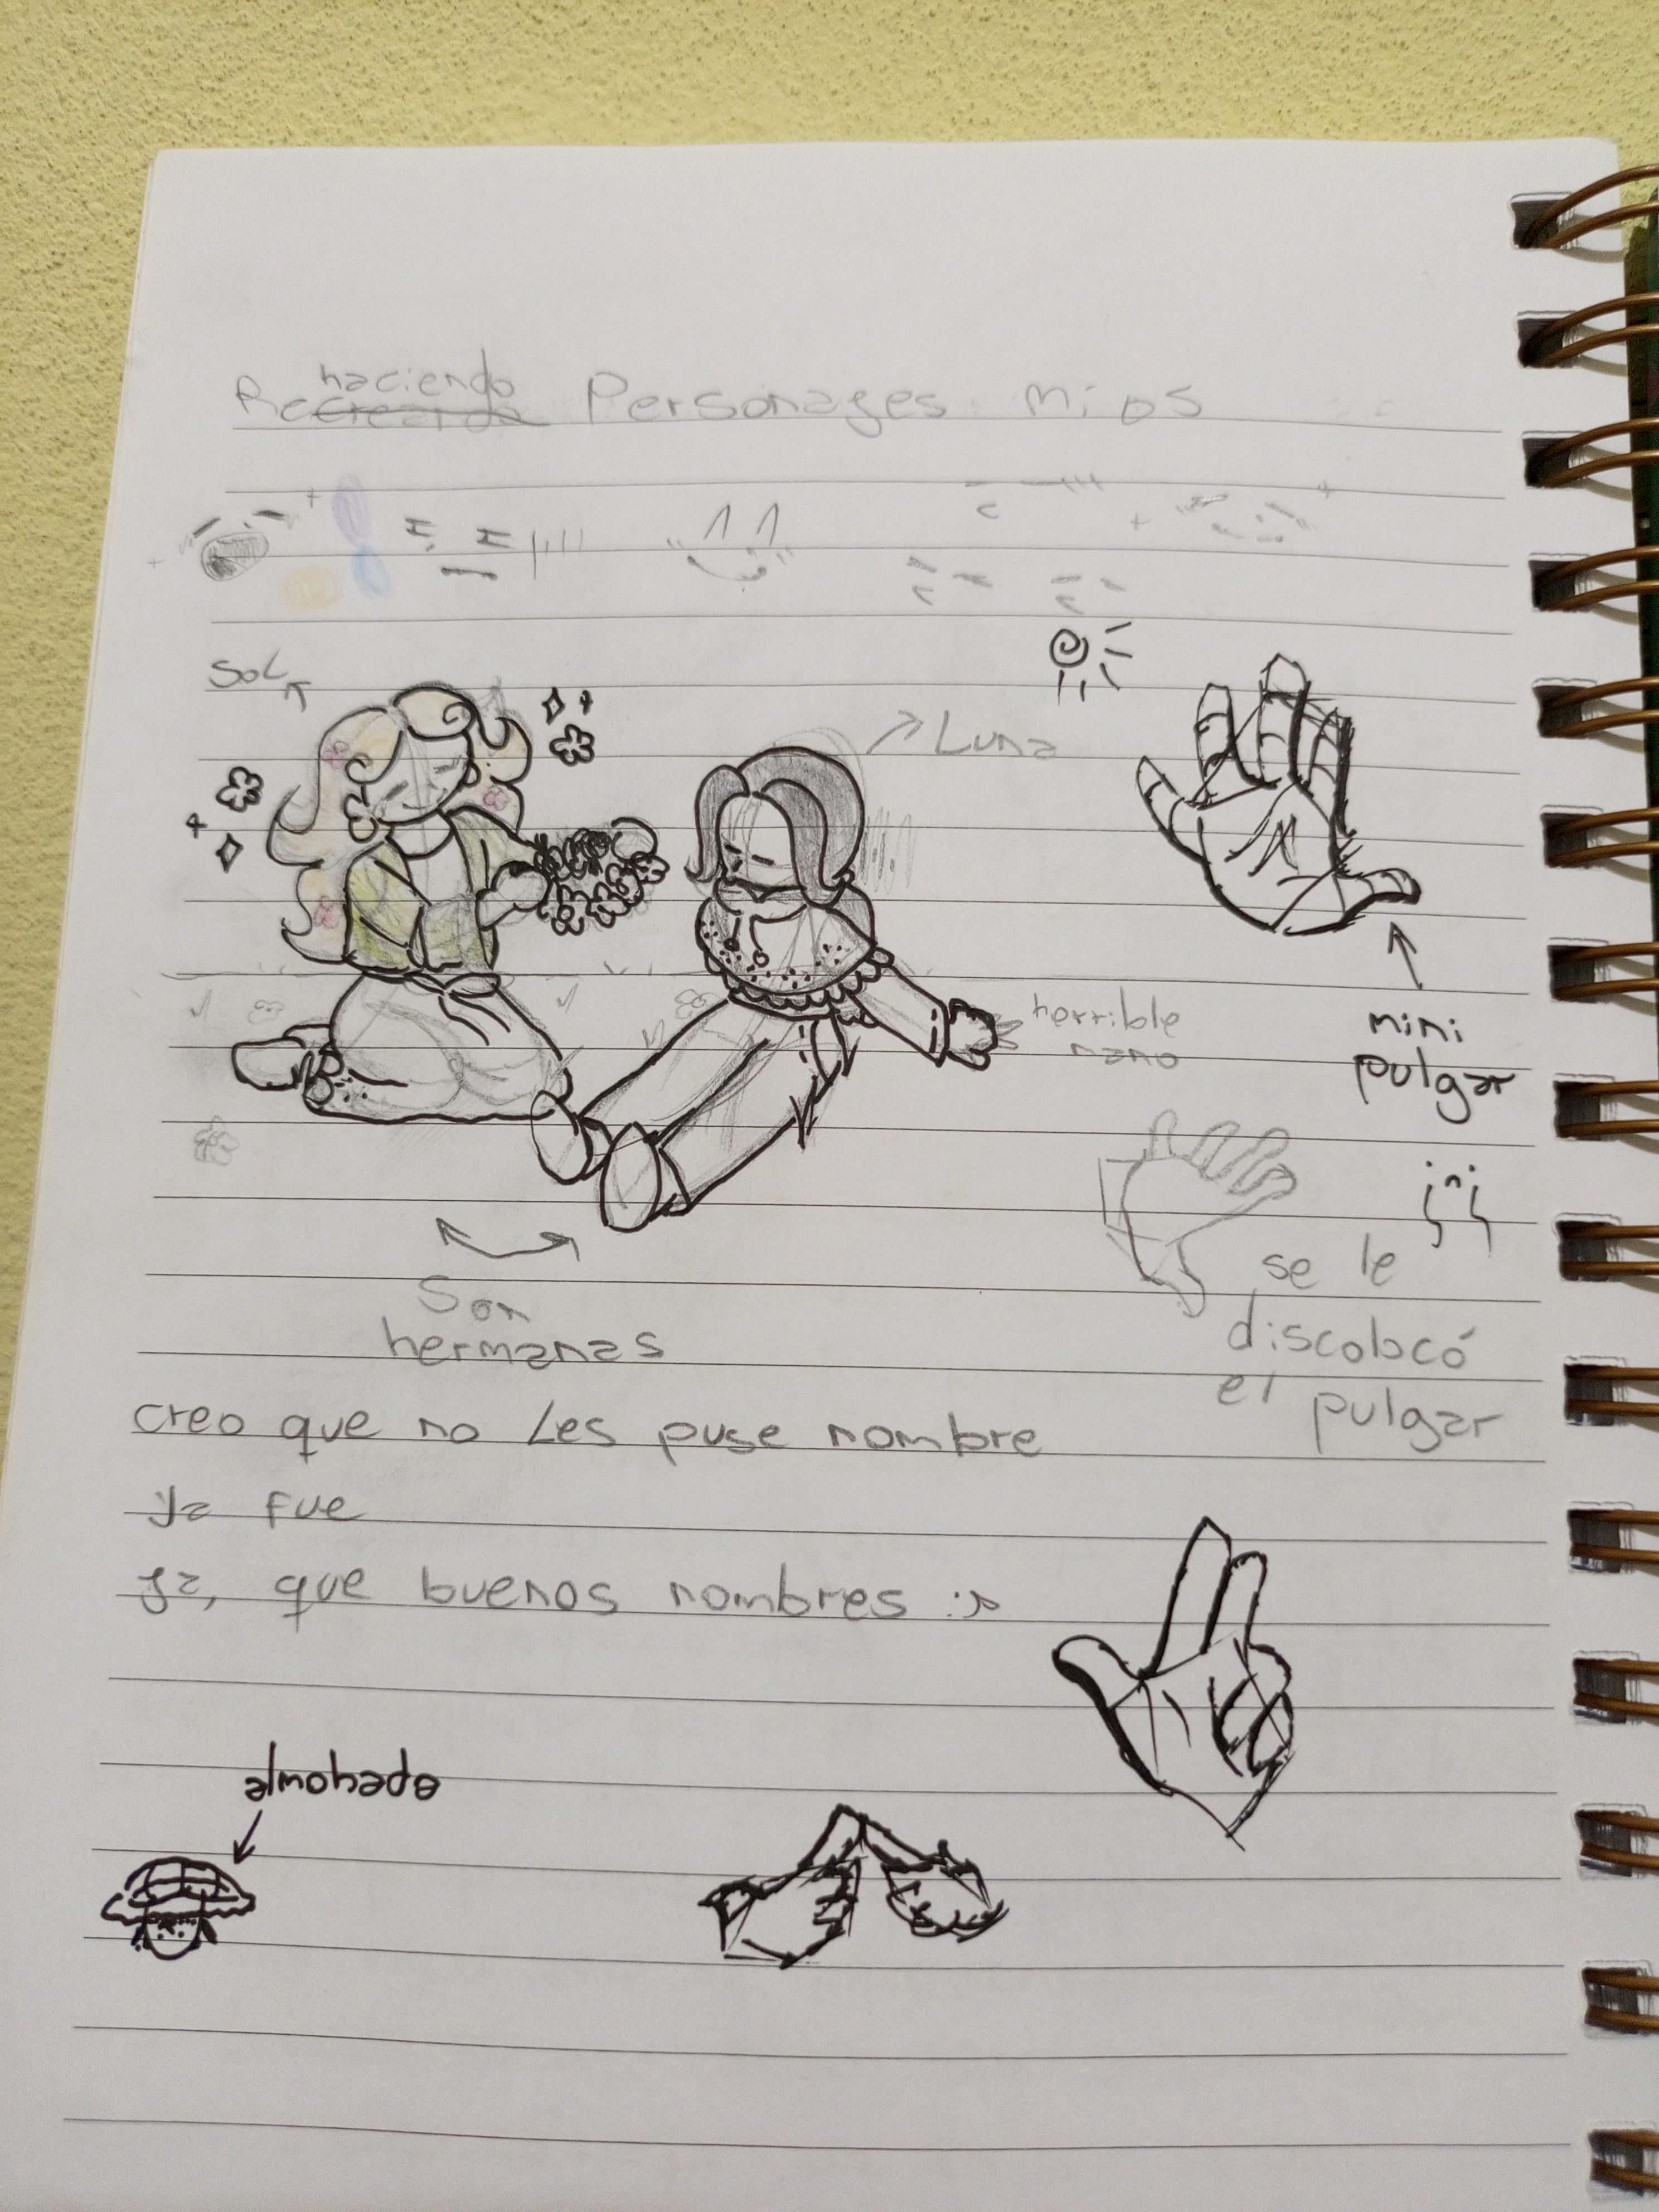 haciendo
Recreando Personages mios
Sol
Luna
horrible
mano
mini
pulgar
se le
discolocó
el pulgar
Son
hermanas
creo que no les puse nombre
ya fue
ya, que buenos nombres :>
almohada